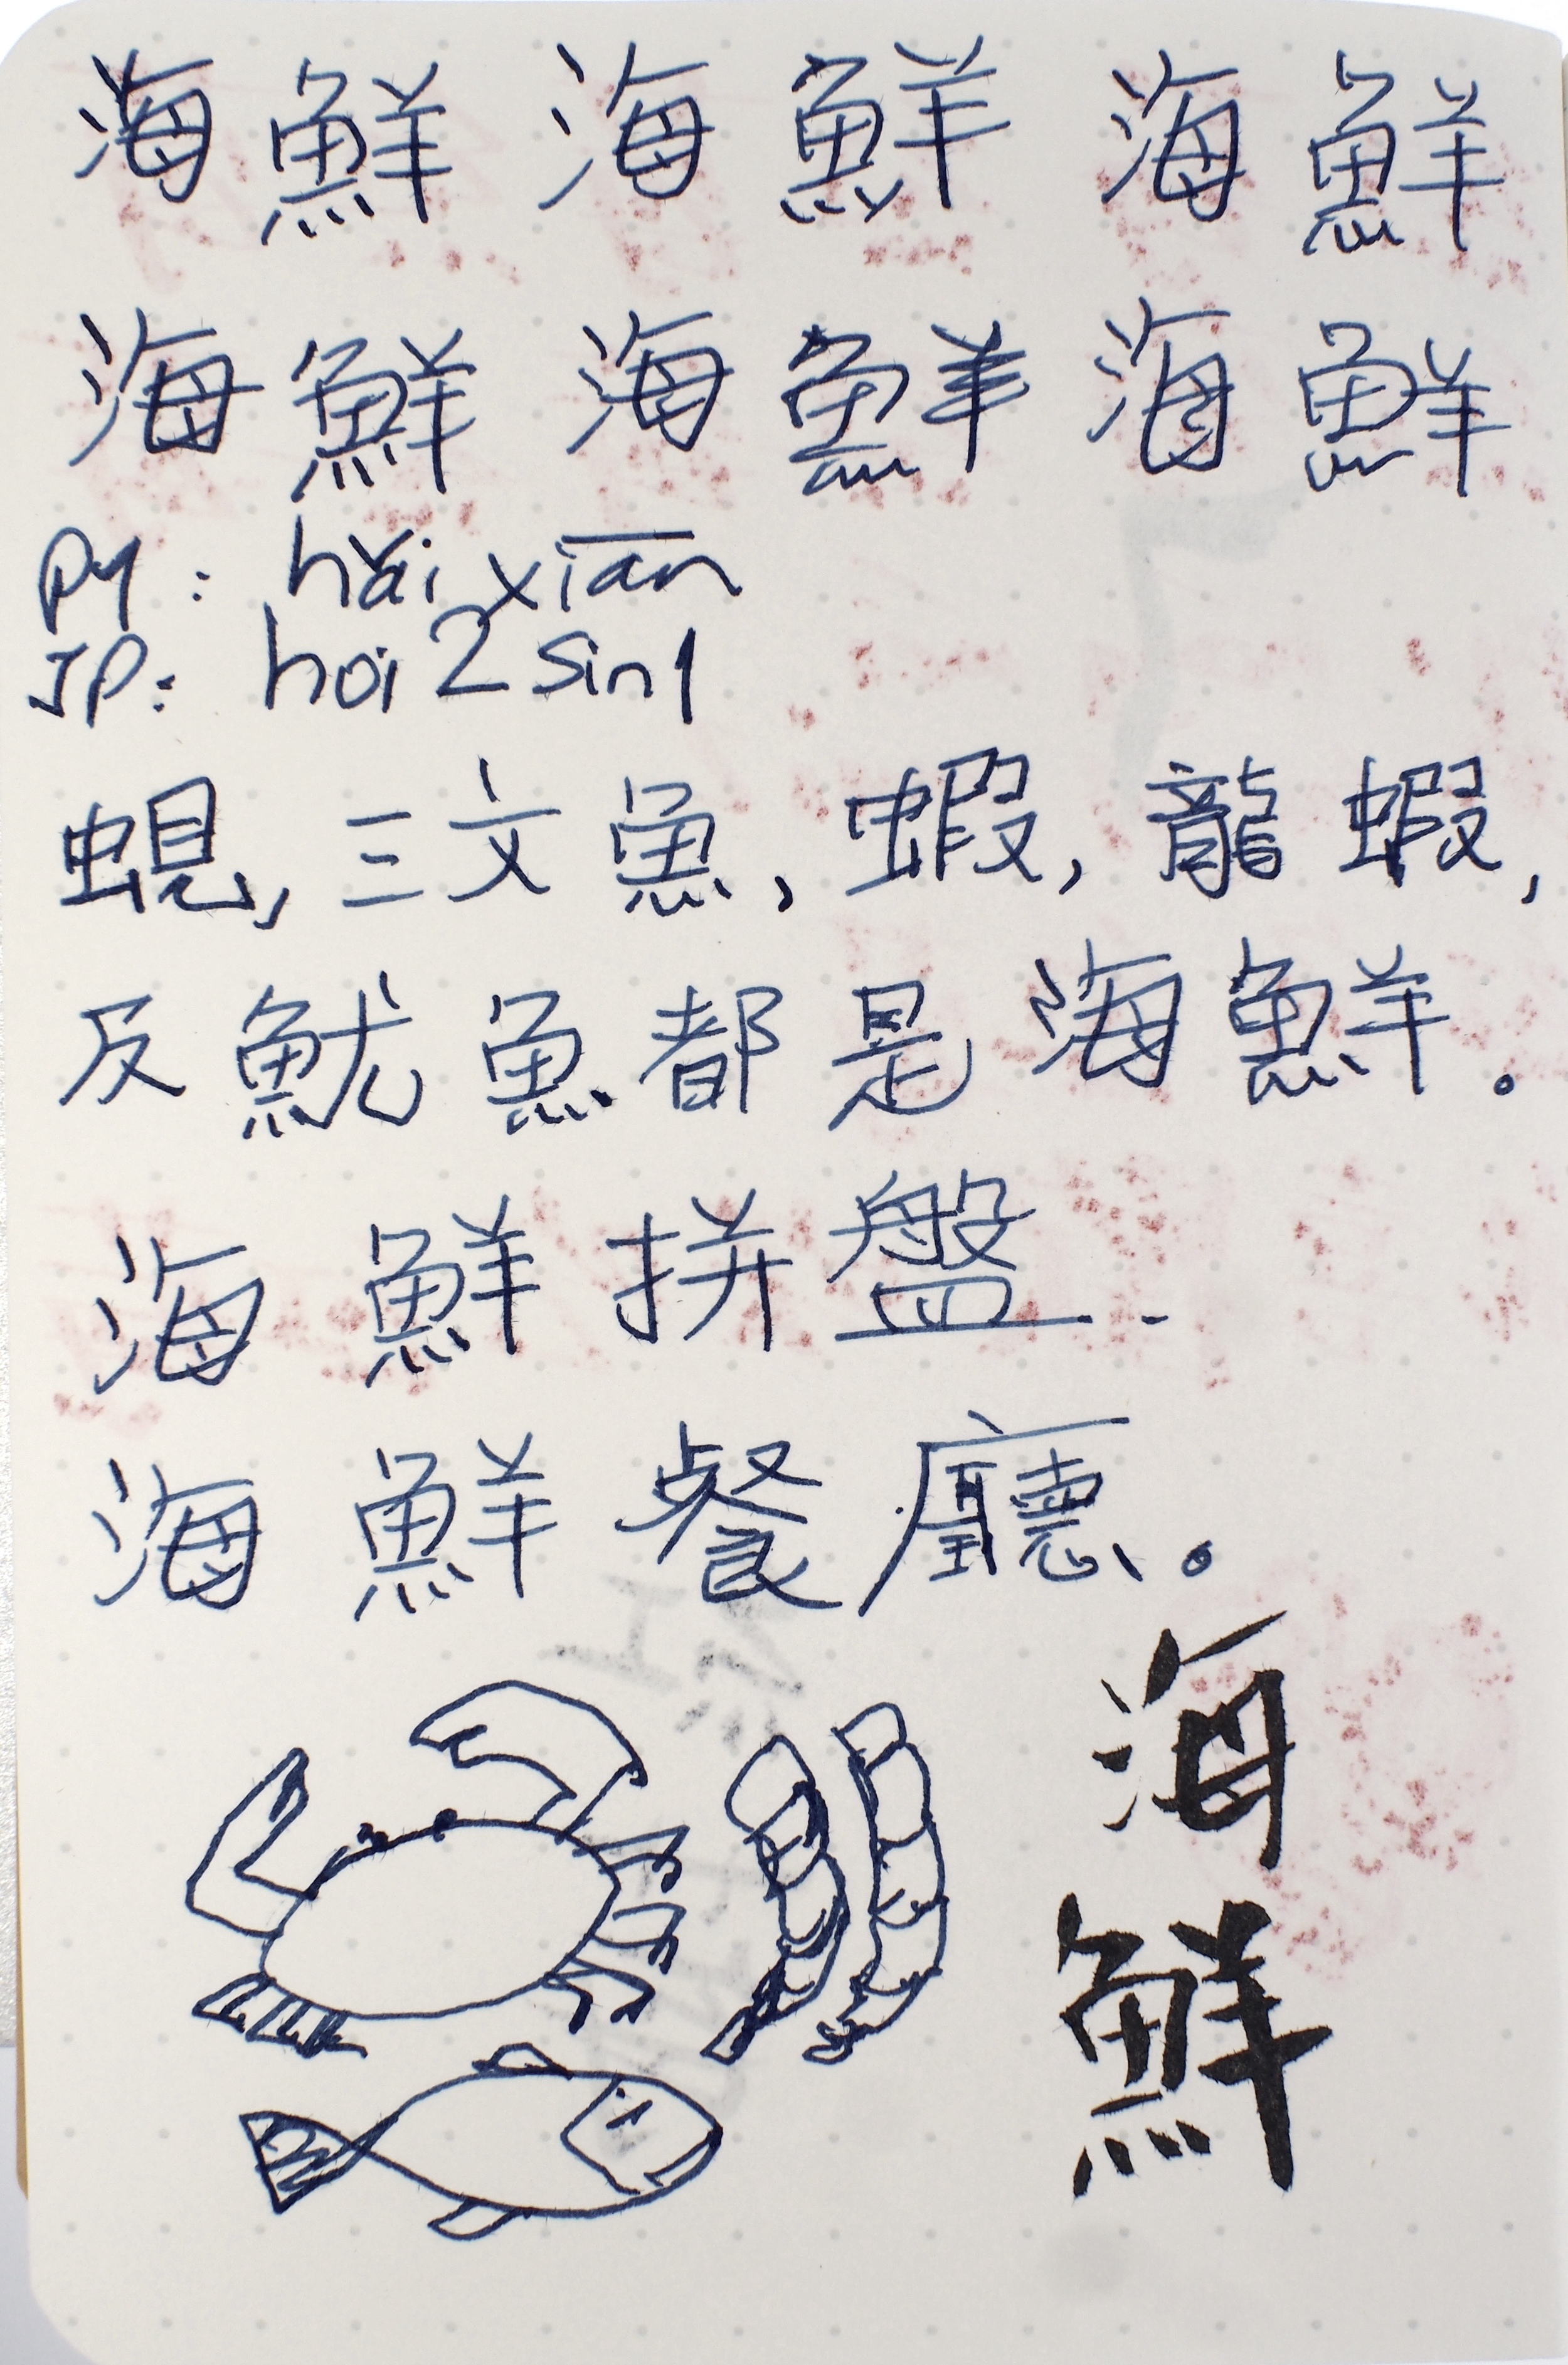 海鮮 海鮮 海鮮
海鮮 海鮮 海鮮
py: hǎi xiān
JP: hoi2 sin1
蜆, 三文魚, 蝦, 龍蝦,
反魷魚都是海鮮。
海鮮拼盤
海鮮餐廳。
海
鮮